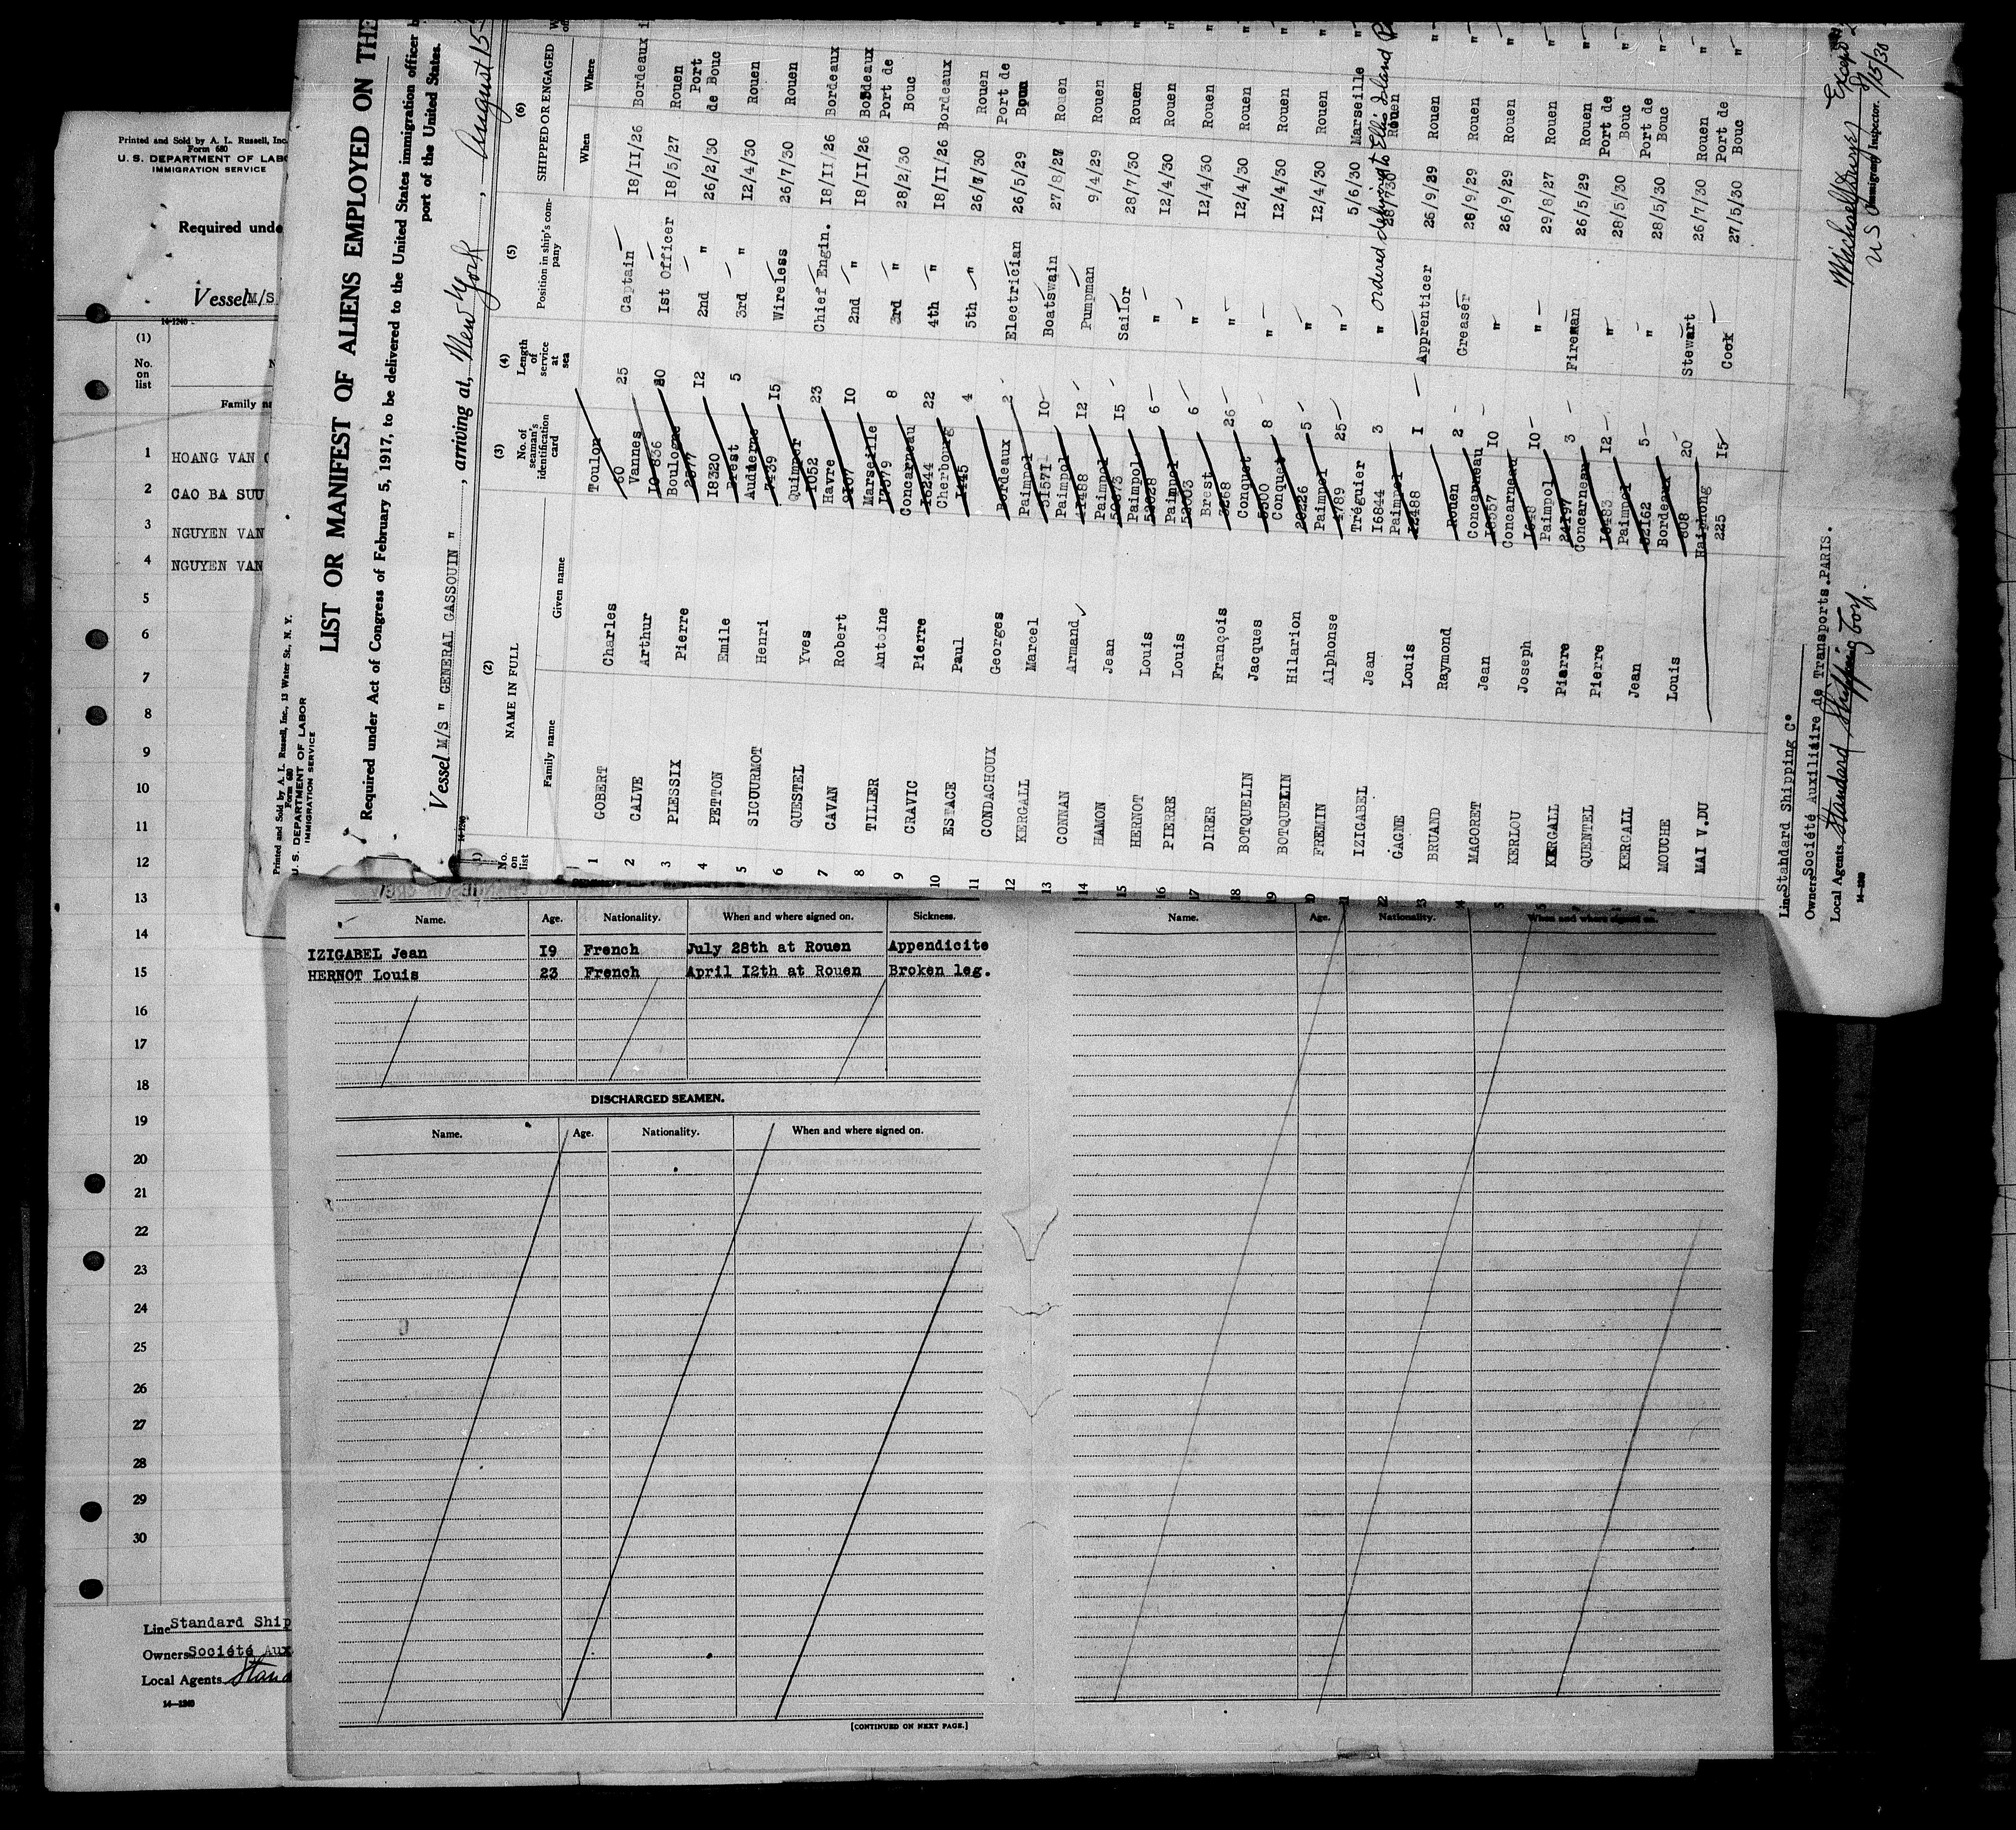 Printed and Sold by A. L. Russell, Inc.
Form 680
U. S. DEPARTMENT OF LABO
IMMIGRATION SERVICE
Required unde
Vessel M/S
14-1240
(1)
No. on list
Family na
1 HOANG VAN
2 CAO BA SUU
3 NGUYEN VAN
4 NGUYEN VAN
5
6
7
8
9
10
11
12
13
14
15
16
17
18
19
20
21
22
23
24
25
26
27
28
29
30
Line Standard Ship
Owners Société Aux
Local Agents Stand
14—1240
Printed and Sold by A. L. Russell, Inc., 13 Water St., N. Y.
Form 680
U. S. DEPARTMENT OF LABOR
IMMIGRATION SERVICE
LIST OR MANIFEST OF ALIENS EMPLOYED ON THE
Required under Act of Congress of February 5, 1917, to be delivered to the United States immigration officer b
port of the United States.
Vessel M/S " GENERAL GASSOUIN ", arriving at, New York, August 15
14-1240
(1) (2) (3) (4) (5) (6)
No. on list NAME IN FULL No. of seaman's identification card Length of service at sea Position in ship's company SHIPPED OR ENGAGED
Family name Given name When Where
1 GOBERT Charles Toulon 60 25 Captain 18/11/26 Bordeaux
2 CALVE Arthur Vannes 10 836 20 1st Officer 18/5/27 Rouen
3 PLESSIX Pierre Boulogne 2377 12 2nd " 26/2/30 Port de Bouc
4 PETTON Emile Brest 18320 5 3rd " 12/4/30 Rouen
5 SICOURMOT Henri Audierne 7439 15 Wireless 26/7/30 Rouen
6 QUESTEL Yves Quimper 1052 23 Chief Engin. 18/11/26 Bordeaux
7 CAVAN Robert Havre 10 2nd " 18/11/26 Bordeaux
8 TILLIER Antoine Marseille 8 3rd " 28/2/30 Port de Bouc
9 CRAVIC Pierre Concarneau 16244 22 4th " 18/11/26 Bordeaux
10 ESTACE Paul Cherbourg 1445 4 5th " 26/7/30 Rouen
11 CONDACHOUX Georges Bordeaux 2 Electrician 26/5/29 Port de Bouc
12 KERGALL Marcel Paimpol 51571 10 Boatswain 27/8/27 Rouen
13 CONNAN Armand Paimpol 41488 12 Pumpman 9/4/29 Rouen
14 HAMON Jean Paimpol 50873 15 Sailor 28/7/30 Rouen
15 HERNOT Louis Paimpol 52028 6 " 12/4/30 Rouen
16 PIERRE Louis Paimpol 52003 6 " 12/4/30 Rouen
17 DIRER François Brest 3268 26 " 12/4/30 Rouen
18 BOTQUELIN Jacques Conquet 5300 8 " 12/4/30 Rouen
19 BOTQUELIN Hilarion Conquet 20226 5 " 12/4/30 Rouen
20 FREMIN Alphonse Paimpol 4789 25 " 5/6/30 Marseille
21 IZIGABEL Jean Tréguier 16844 3 " 28/7/30 Rouen
ordered detained at Ellis Island
22 GAGNE Louis Paimpol 12488 1 Apprenticer 26/9/29 Rouen
23 BRUAND Raymond Rouen 2 Greaser 26/9/29 Rouen
24 MAGORET Jean Concarneau 18557 10 " 26/9/29 Rouen
KERLOU Joseph Concarneau 10 " 29/8/27 Rouen
KERGALL Pierre Paimpol 24197 3 Fireman 26/5/29 Rouen
QUENTEL Pierre Concarneau 16483 12 " 28/5/30 Port de Bouc
KERGALL Jean Paimpol 52162 5 " 28/5/30 Port de Bouc
MOUCHE Louis Bordeaux 808 20 Stewart 26/7/30 Rouen
MAI V.DU Haiphong 225 15 Cook 27/5/30 Port de Bouc
Line Standard Shipping C°
Owners Société Auxiliaire de Transports.PARIS.
Local Agents Standard Shipping Coy.
14-1240
Michael Dwyer
U S Immigrant Inspector.
Except
8/15/30
Name. Age. Nationality. When and where signed on. Sickness.
IZIGABEL Jean 19 French July 28th at Rouen Appendicite
HERNOT Louis 23 French April 12th at Rouen Broken leg.
DISCHARGED SEAMEN.
Name. Age. Nationality. When and where signed on.
[CONTINUED ON NEXT PAGE.]
Name. Age. Nationality. When and where signed on.